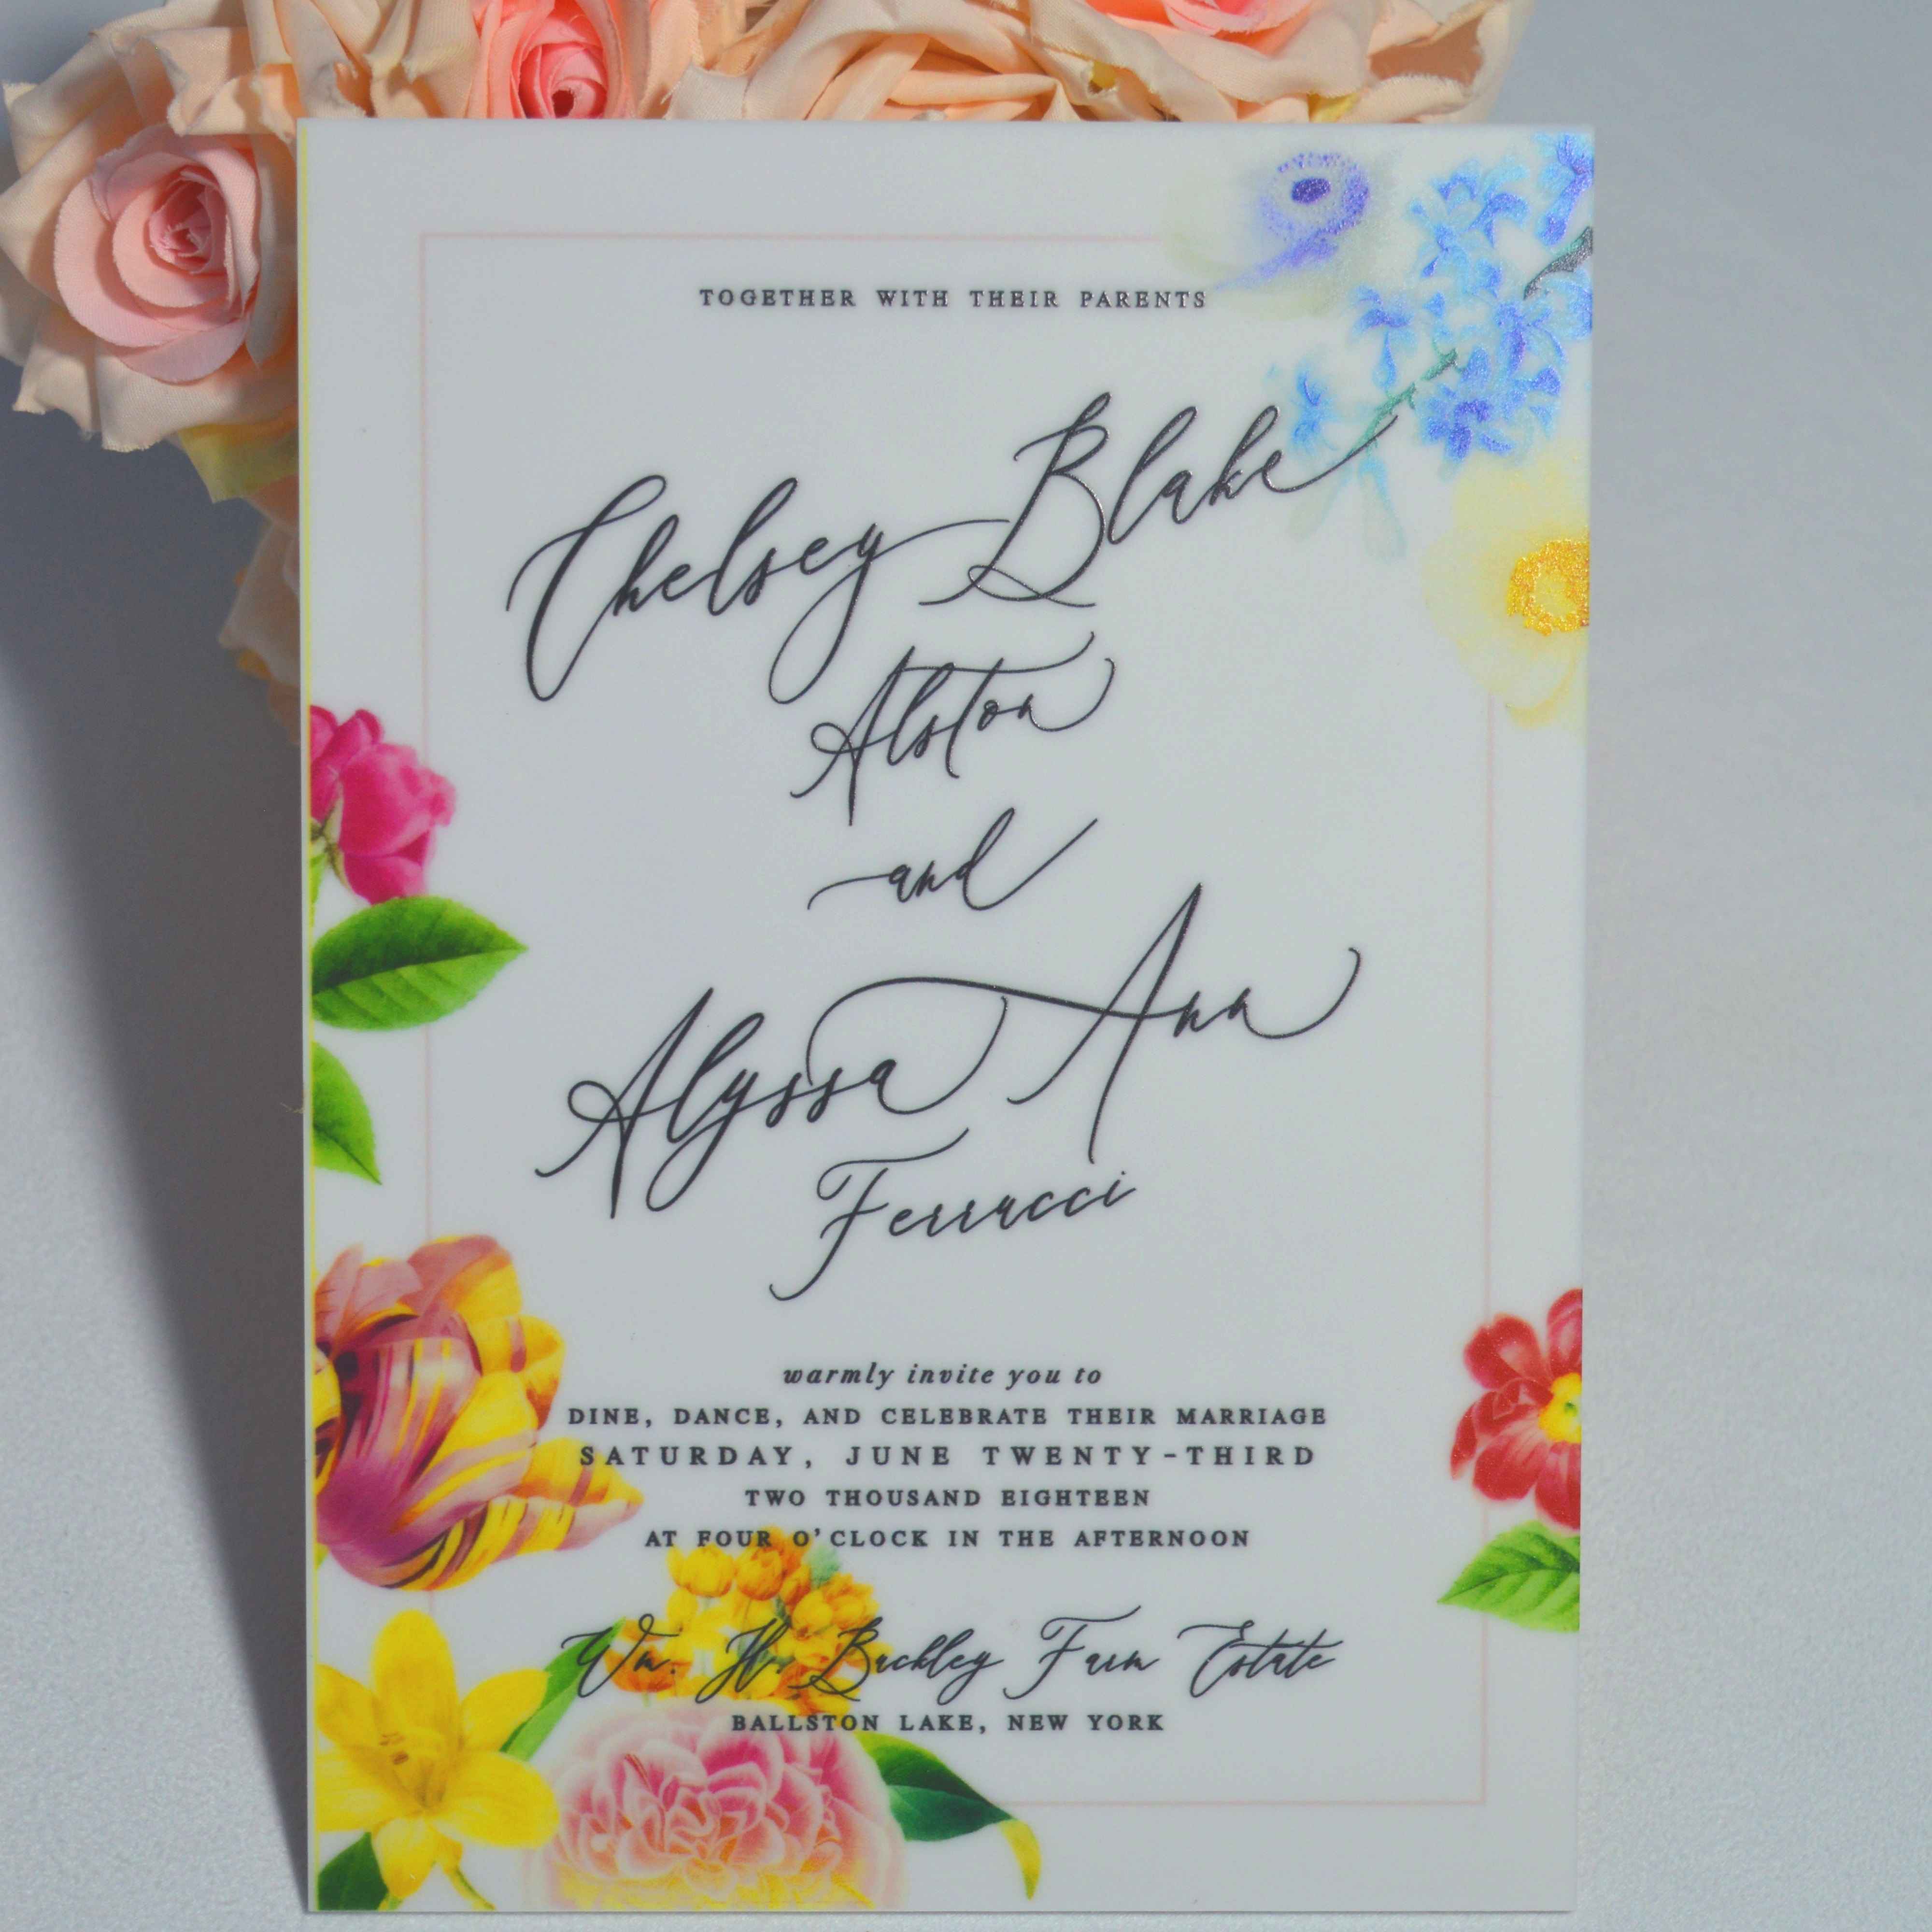 TOGETHER WITH THEIR PARENTS
Chelsey Blake
Alston
and
Alyssa Ann
Ferrucci
warmly invite you to
DINE, DANCE, AND CELEBRATE THEIR MARRIAGE
SATURDAY, JUNE TWENTY-THIRD
TWO THOUSAND EIGHTEEN
AT FOUR O'CLOCK IN THE AFTERNOON
Wm. H. Buckley Farm Estate
BALLSTON LAKE, NEW YORK